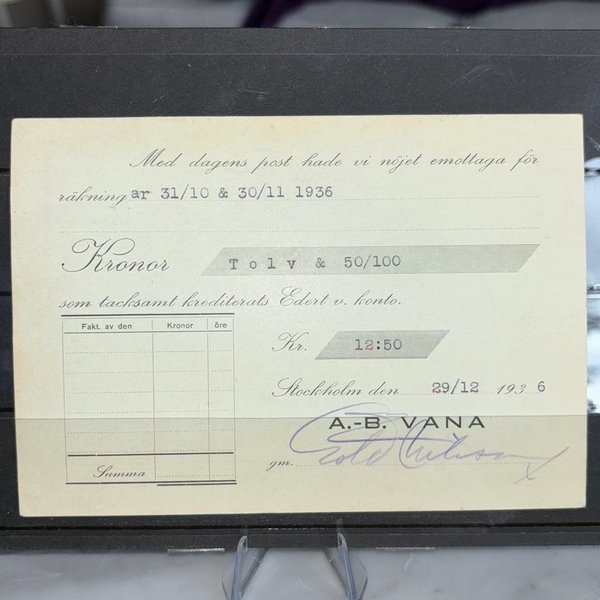 Med dagens post hade vi nöjet emottaga för
räkningar 31/10 & 30/11 1936
Kronor Tolv & 50/100
som tacksamt krediterats Edert v. konto.
Fakt. av den Kronor öre
Kr. 12:50
Stockholm den 29/12 1936
A.-B. VANA
Summa
gm.